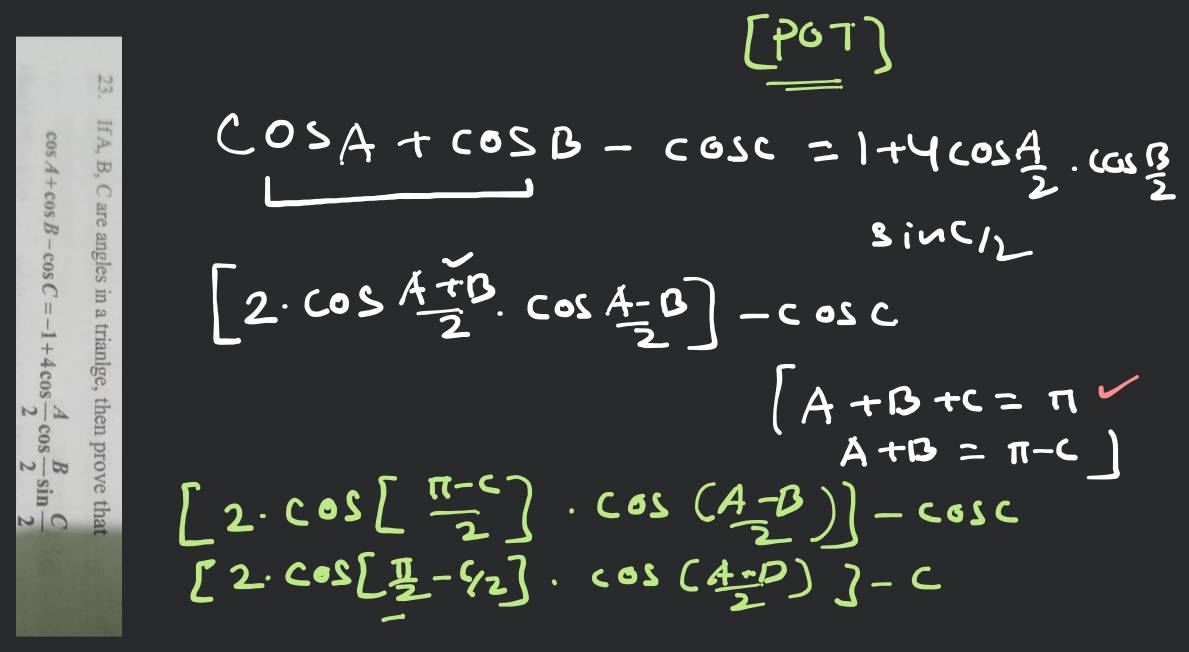 23. If A, B, C are angles in a trianlge, then prove that
cos A+cos B−cos C=−1+4cos A/2 cos B/2 sin C/2
[POT]
COSA + COSB − cosc = 1+4cos A/2 . cos B/2
sinC/2
[2.cos A+B/2 . cos A−B/2] − cosc
[A+B+C = π
A+B = π−C]
[2.cos[π−C/2] . cos (A−B/2)] − cosc
[2.cos[π/2 − C/2] . cos (A−B/2)] − C